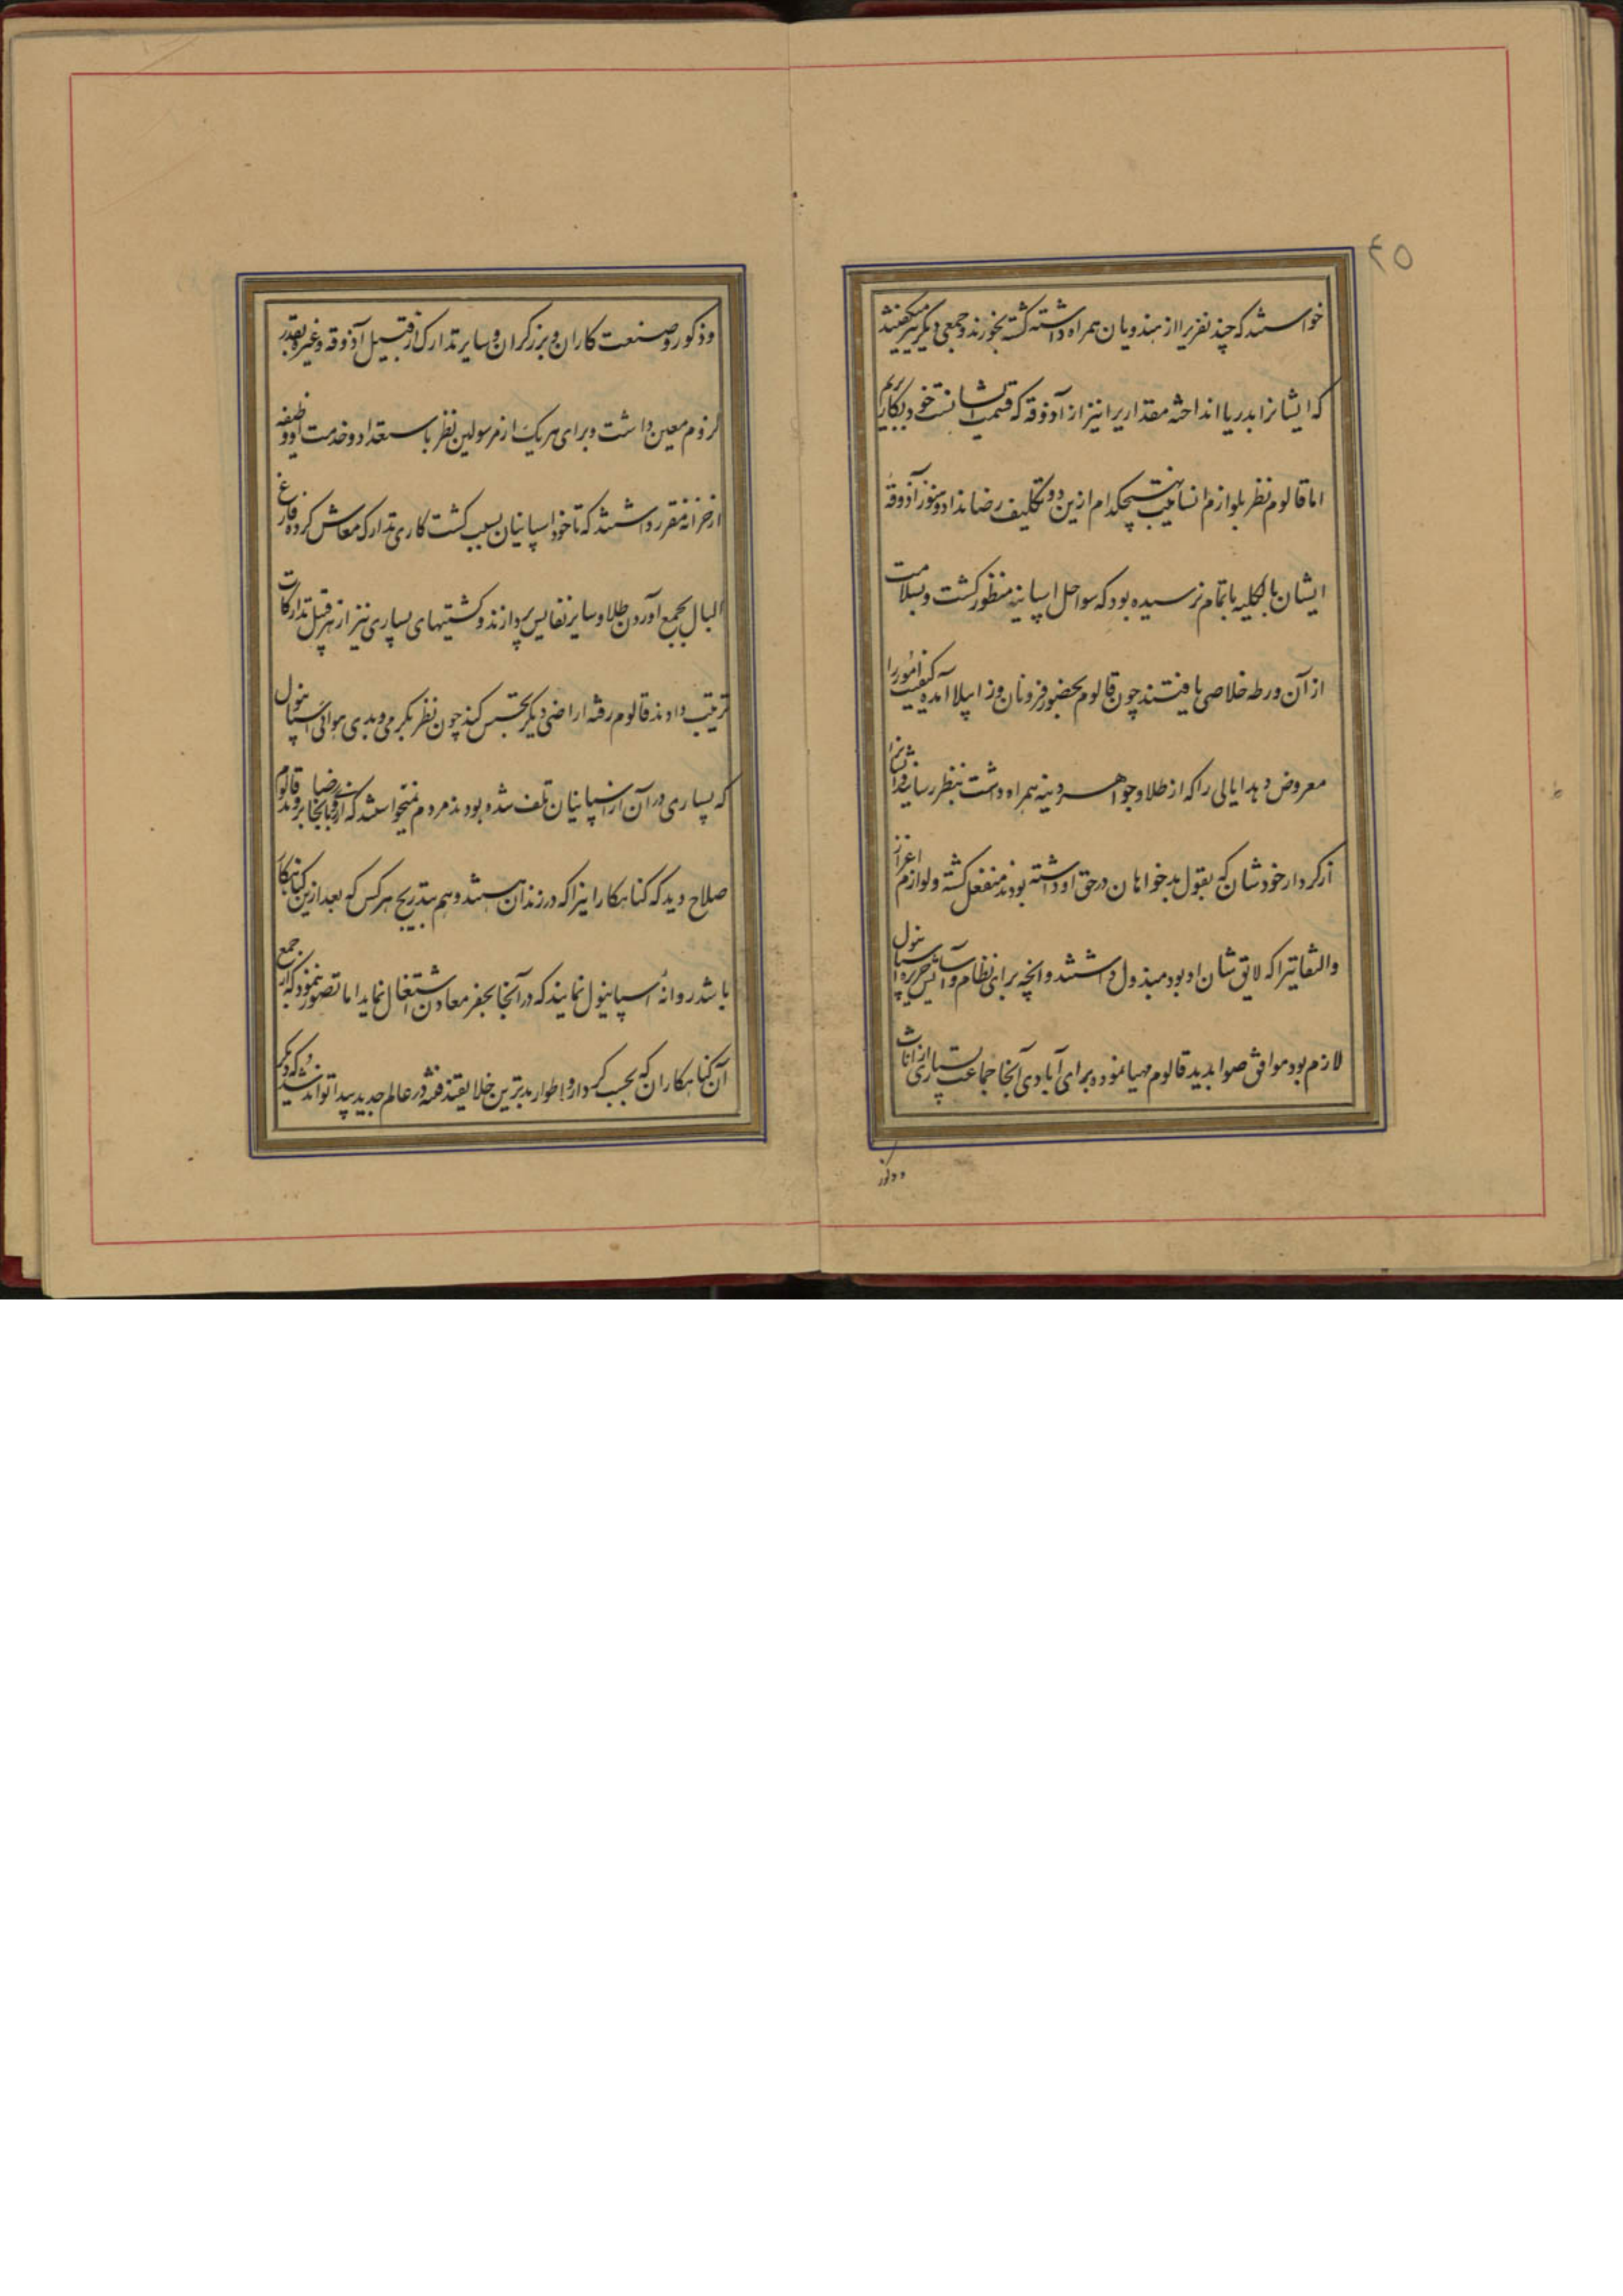 ۴۵
خواستند که چند نفریرا از هندویان همراه داشته کشته بخورند و جمعی دیگر میگفتند
که ایشانرا بدریا انداخته مقداریرا نیز از آذوقه که قسمت ایشانست خود بکار بریم
اما قالوم نظر بلوازم انسانیت بهیچکدام ازین دو تکلیف رضا نداد و هنوز آذوقهٔ
ایشان بالکلیه باتمام نرسیده بود که سواحل اسپانیه منظور کشت و بسلامت
از آن ورطه خلاصی یافتند چون قالوم بحضور فرونان و زابیلا آمده کیفیت امور را
معروض و هدایائی را که از طلا و جواهر و غیره همراه داشت بنظر رسانید ایشانرا
از کردار خودشان که بقول بدخواهان در حق او داشته بودند منفعل کشته و لوازم اعزاز
و التفاتیرا که لایق شان او بود مبذول داشتند و آنچه برای نظام و آسایش جزیره اسپانیول
لازم بود موافق صوابدید قالوم مهیا نموده برای آبادی آنجا جماعت بسیاری از اناث
و ذکور
و ذکور و صنعت کاران و برزکران و سایر تدارک از قبیل آذوقه و غیره بقدر
لزوم معین داشت و برای هر یک از مرسولین نظر باستعداد و خدمت او وظیفه
از خزانه مقرر داشتند که تا خود اسپانیان بسبب کشت کاری تدارک معاش کرده فارغ
البال بجمع آوردن طلا و سایر نفایس پردازند و کشتیهای بسیاری نیز از هر قبیل تدارکات
ترتیب دادند قالوم رفته اراضی دیگر تجسس کند چون نظر بگرمی و بدی هوای اسپانیول
که بسیاری در آن از اسپانیان تلف شده بودند مردم نمیخواستند که از روی رضا بآنجا بروند قالوم
صلاح دید که کناهکارانیرا که در زندان هستند و هم بتدریج هر کس که بعد ازین کناهکار
باشد روانهٔ اسپانیول نمایند که در آنجا بحفر معادن اشتغال نماید اما تصور ننمود که از جمع
آن کناهکاران که بحسب کردار و اطوار بدترین خلایقند فتنه در عالم جدید پیدا تواند شد که دیگر